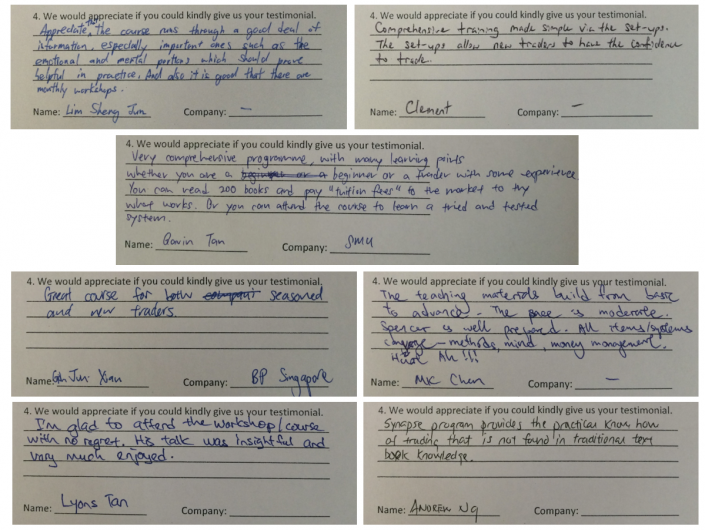 4. We would appreciate if you could kindly give us your testimonial.
Appreciate, the course runs through a good deal of
information, especially important ones such as the
emotional and mental portions which should prove
helpful in practice. And also it is good that there are
monthly workshops.
Name: Lim Sheng Jun Company: —
4. We would appreciate if you could kindly give us your testimonial.
Comprehensive training made simple via the set-ups.
The set-ups allow new traders to have the confidence
to trade.
Name: Clement Company: —
4. We would appreciate if you could kindly give us your testimonial.
Very comprehensive programme, with many learning points
whether you are a beginner or a trader with some experience.
You can read 200 books and pay "tuition fees" to the market to try
what works. Or you can attend the course to learn a tried and tested
system.
Name: Gavin Tan Company: SMU
4. We would appreciate if you could kindly give us your testimonial.
Great course for both seasoned
and new traders.
Name: Goh Jun Xian Company: BP Singapore
4. We would appreciate if you could kindly give us your testimonial.
The teaching materials build from basic
to advance - The pace is moderate.
Spencer is well prepared. All items/systems
- methods, mind, money management.
Huat Ah !!!
Name: MK Chen Company: —
4. We would appreciate if you could kindly give us your testimonial.
I'm glad to attend the workshop/course
with no regret. His talk was insightful and
very much enjoyed.
Name: Lyons Tan Company:
4. We would appreciate if you could kindly give us your testimonial.
Synapse program provides the practical know how
of trading that is not found in traditional text
book knowledge.
Name: ANDREW Ng Company: